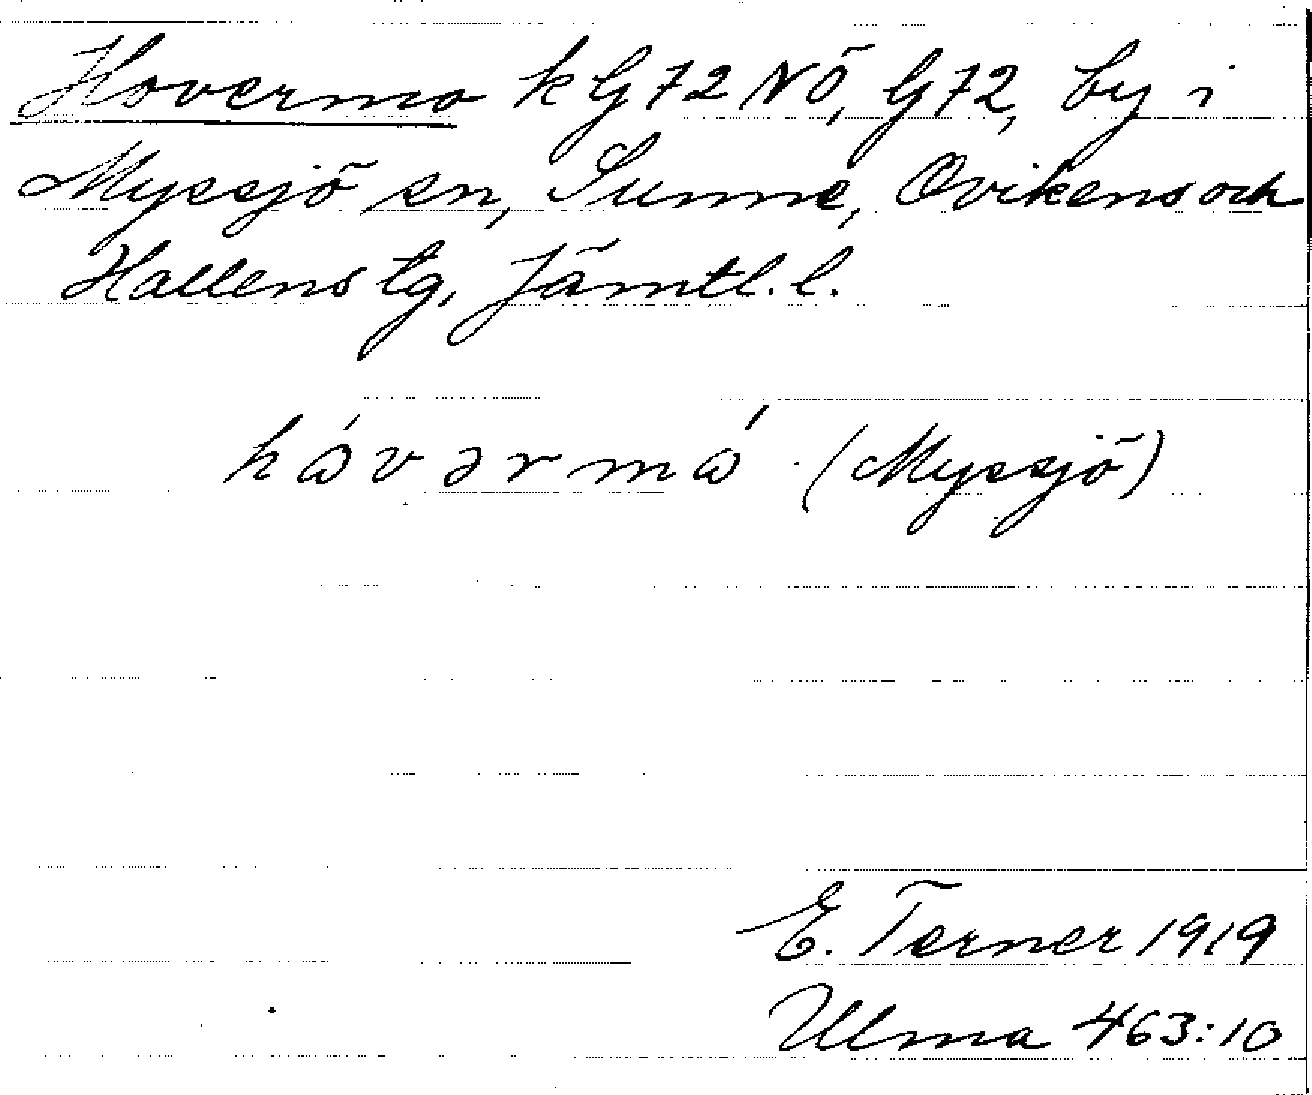 Hovermo k G 72 NÖ, G 72, by i
Myssjö sn, Sunne, Ovikens och
Hallens tg, Jämtl. l.
hα̊́vərmα̊́ (Myssjö)
E. Terner 1919
Ulma 463:10